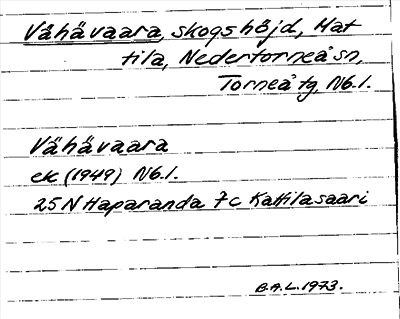 Vähävaara, skogshöjd, Mat
tila, Nedertorneå sn,
Torneå tg Nb.l.
Vähävaara
ek (1949) Nb.l.
25 N Haparanda 7c Kattilasaari
B.A.L. 1973.